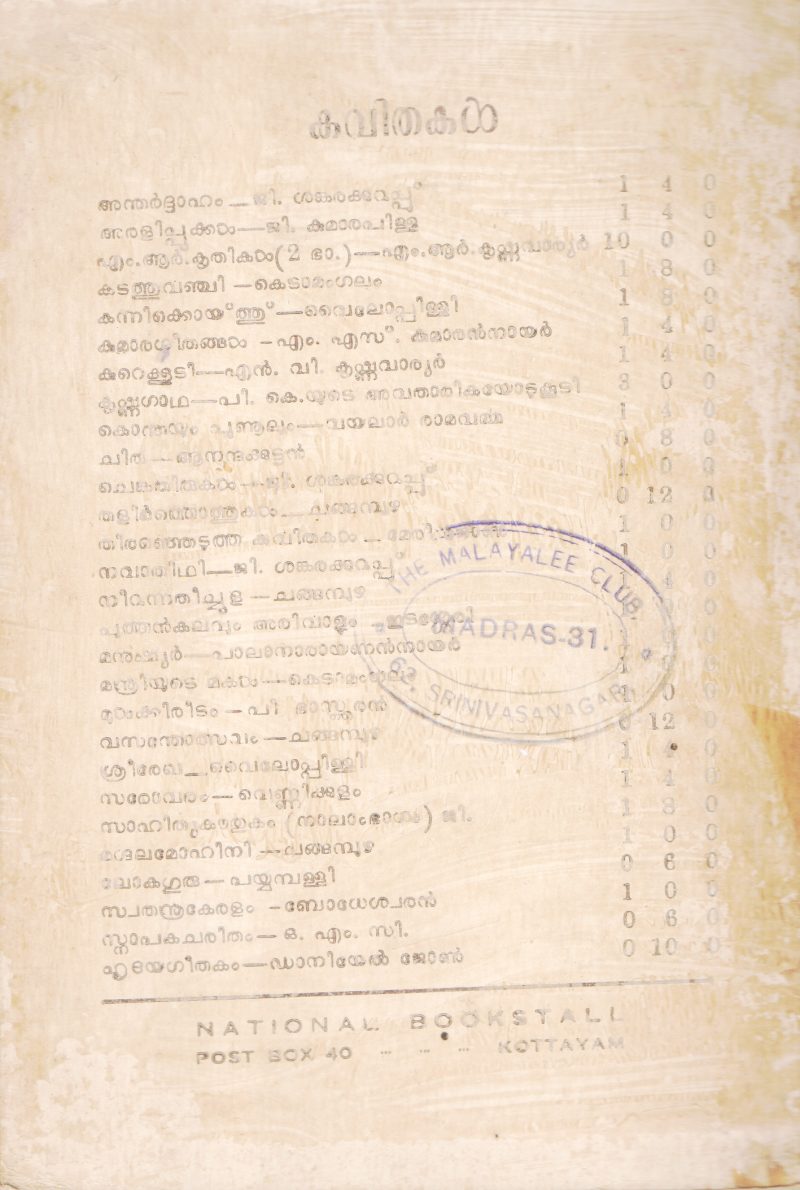 കവിതകൾ
അന്തർദ്ദാഹം—ജി. ശങ്കരക്കുറുപ്പ് 1 4 0
അരളിപ്പൂക്കൾ—ജി. കുമാരപിള്ള 1 4 0
എം.ആർ.കൃതികൾ(2 ഭാ.)—എം.ആർ.കൃഷ്ണവാര്യർ 10 0 0
കടത്തുവഞ്ചി—കെടാമംഗലം 1 8 0
കന്നിക്കൊയ്ത്തു്—വൈലോപ്പിള്ളി 1 8 0
കുമാരഗീതങ്ങൾ—എം. എസ്. കുമാരൻനായർ 1 4 0
കുറെക്കൂടി—എൻ. വി. കൃഷ്ണവാര്യർ 1 4 0
കൃഷ്ണഗാഥ—പി. കെ.യുടെ അവതാരികയോടുകൂടി 3 0 0
കൊന്തയും പൂണൂലും—വയലാർ രാമവർമ്മ 1 4 0
ചിത—ആനന്ദക്കുട്ടൻ 0 8 0
ചെങ്കതിരുകൾ—ജി. ശങ്കരക്കുറുപ്പ് 1 0 0
തളിർത്തൊത്തുകൾ—ചങ്ങമ്പുഴ 0 12 0
തിരഞ്ഞെടുത്ത കവിതകൾ—മേരിജോൺ 1 0 0
നവാതിഥി—ജി. ശങ്കരക്കുറുപ്പ് 1 0 0
നീറുന്നതീച്ചൂള—ചങ്ങമ്പുഴ 1 4 0
പുത്തൻകലവും അരിവാളും—ഇടശ്ശേരി
മനുഷ്യർ—പാലാനാരായണൻനായർ
മന്ത്രിയുടെ മകൾ—കെടാമംഗലം
മുൾക്കിരീടം—പി. ഭാസ്കരൻ 1 0 0
വസന്തോത്സവം—ചങ്ങമ്പുഴ 0 12 0
ശ്രീരേഖ—വൈലോപ്പിള്ളി 1 4 0
സരോവരം—വെണ്ണിക്കുളം 1 4 0
സാഹിത്യകൗതുകം (നാലാംഭാഗം) ജി. 1 8 0
മോഹിനി—ചങ്ങമ്പുഴ 1 0 0
ലോകഗുരു—പയ്യമ്പള്ളി 0 6 0
സ്വതന്ത്രകേരളം—ബോധേശ്വരൻ 1 0 0
സ്നാപകചരിതം—ഒ. എം. സി. 0 6 0
ഹൃദയഗീതകം—ഡാനിയേൽ ജോൺ 0 10 0
THE MALAYALEE CLUB
MADRAS-31.
SRINIVASANAGAR
NATIONAL BOOKSTALL
POST BOX 40 ... ... ... KOTTAYAM